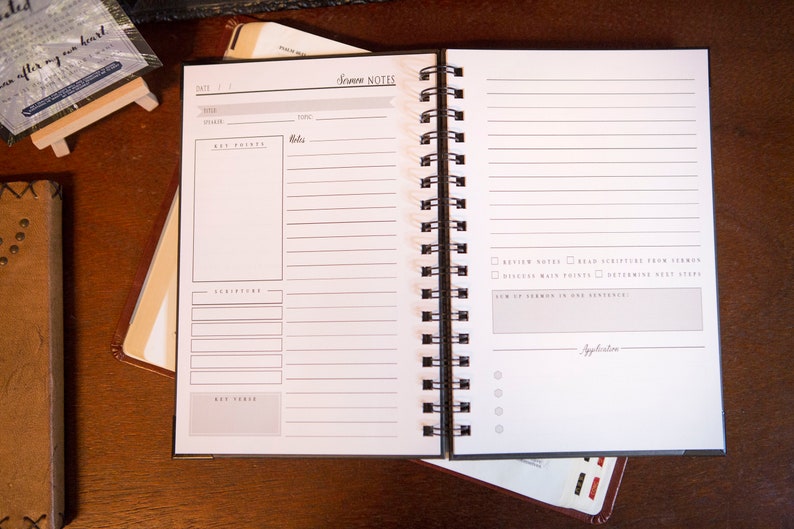 after my own heart.
PSALM
DATE / /
Sermon NOTES
TITLE:
SPEAKER: TOPIC:
KEY POINTS
Notes
SCRIPTURE
KEY VERSE
REVIEW NOTES READ SCRIPTURE FROM SERMON
DISCUSS MAIN POINTS DETERMINE NEXT STEPS
SUM UP SERMON IN ONE SENTENCE:
Application